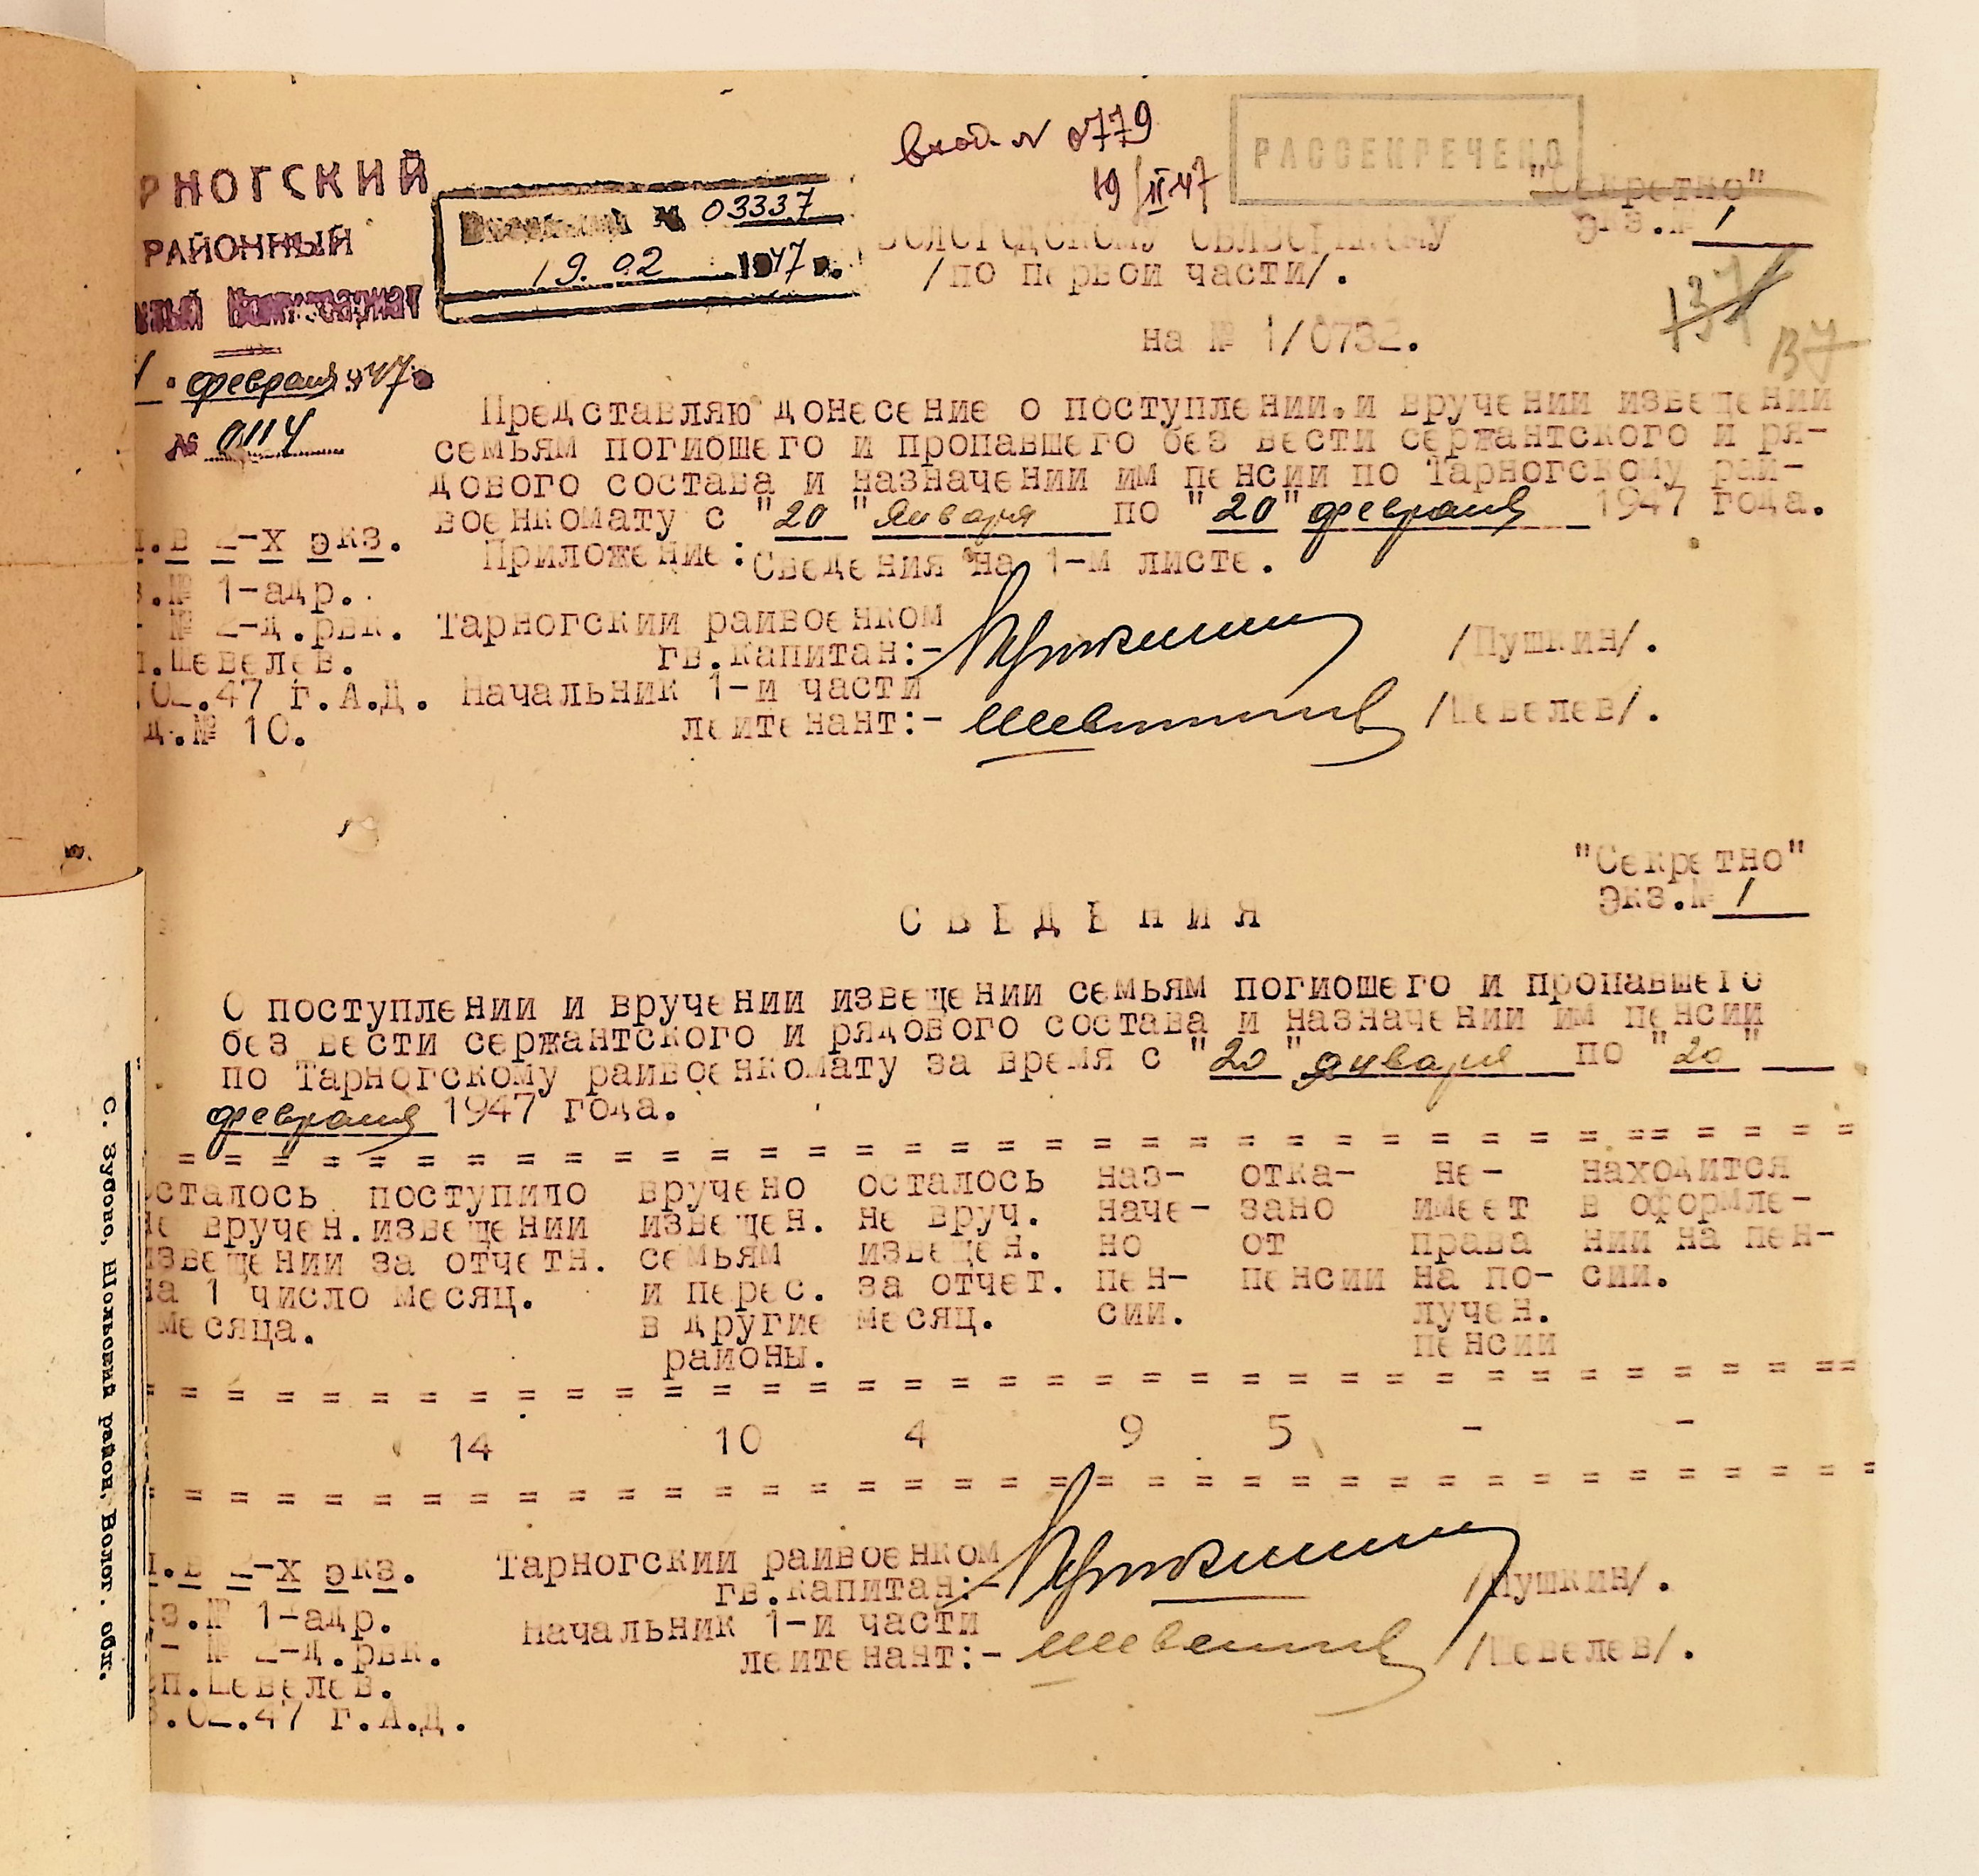 вход. № 0779
19/II 47
РАССЕКРЕЧЕНО
"Секретно"
экз.№ 1
РНОГСКИЙ
РАЙОННЫЙ
Комиссариат
№ 03337
19.02 1947 г.
Вологодскому облвоенкому
/по первой части/.
137
137
на № 1/0732.
февраля 1947 г.
№ 0114
Представляю донесение о поступлении.и вручении извещении
семьям погибшего и пропавшего без вести сержантского и ря-
дового состава и назначении им пенсии по Тарногскому рай-
военкомату с "20" января по "20" февраля 1947 года.
Приложение: Сведения на 1-м листе.
.в 2-х экз.
.№ 1-адр.
- № 2-д.рвк.
.Шевелев.
.02.47 г.А.Д.
д.№ 10.
Тарногский райвоенком
гв.капитан:- /Пушкин/.
Начальник 1-й части
лейтенант:- /Шевелев/.
"Секретно"
Экз.№ 1
С В Е Д Е Н И Я
О поступлении и вручении извещении семьям погибшего и пропавшего
без вести сержантского и рядового состава и назначении им пенсии
по Тарногскому райвоенкомату за время с "20" января по "20"
февраля 1947 года.
осталось поступило вручено осталось наз- отка- не- находится
не вручен. извещении извещен. не вруч. наче- зано имеет в оформле-
извещении за отчетн. семьям извещен. но от права нии на пен-
на 1 число месяц. и перес. за отчет. пен- пенсии на по- сии.
месяца. в другие месяц. сии. лучен.
районы. пенсии
14 10 4 9 5 - -
.в 2-х экз.
з.№ 1-адр.
- № 2-д.рвк.
сп.Шевелев.
.02.47 г.А.Д.
Тарногский райвоенком
гв.капитан:- /Пушкин/.
Начальник 1-й части
лейтенант:- /Шевелев/.
с. Зубово, Шольский район, Волог. обл.